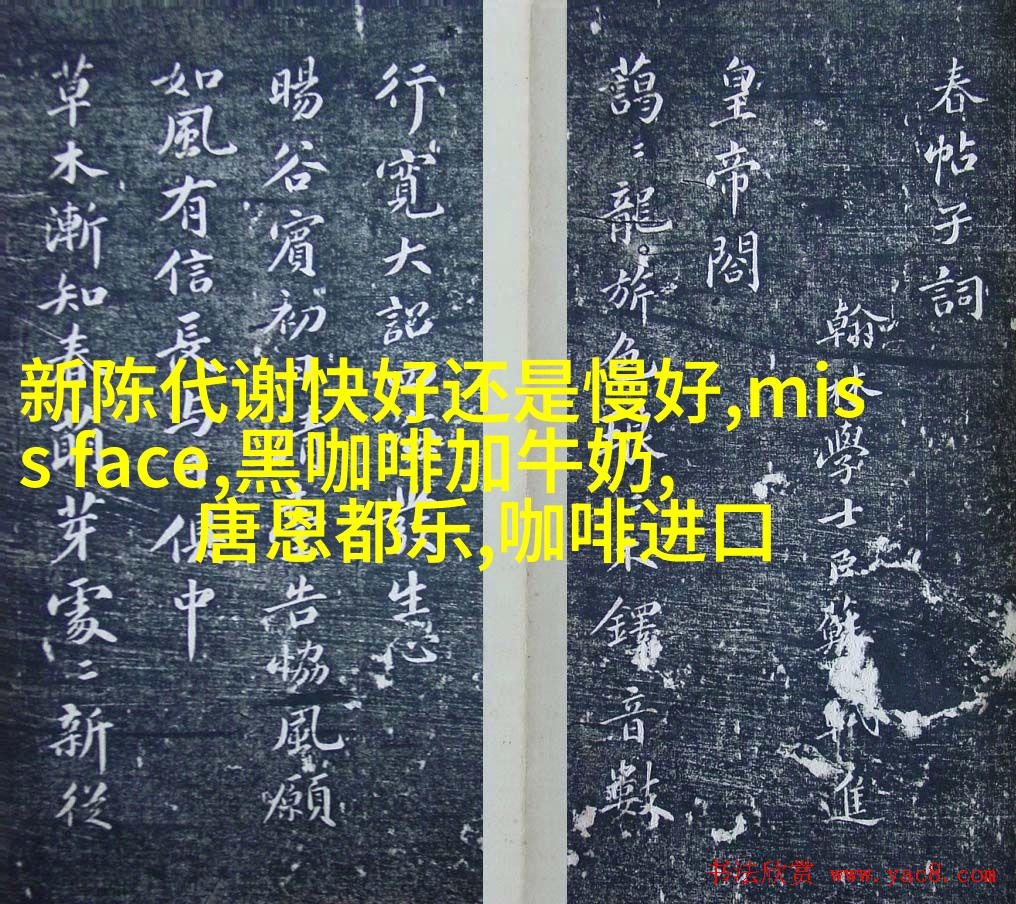 新陈代谢快好还是慢好,mis
s face,黑咖啡加牛奶,
唐恩都乐,咖啡进口
春帖子詞
翰林學士臣蘇軾進
皇帝閤
藹〻龍旂色 木鐸音數
行寬大詔 發生心
暘谷賓初日 告協風願
如風有信長與 俱中
草木漸知春萌芽處〻新從
书法欣赏 www.yac8.com